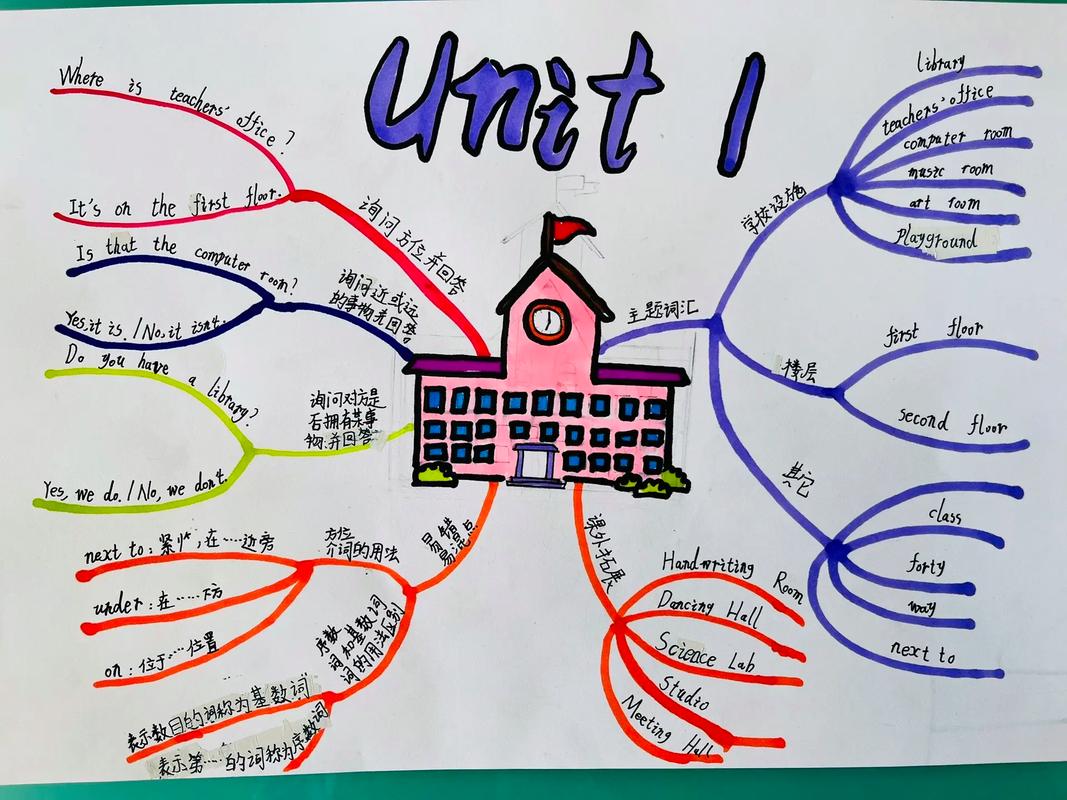 Unit 1
Where is teachers' office?
It's on the first floor.
询问方位并回答
Is that the computer room?
Yes, it is. / No, it isn't.
询问近或远
的事物并回答
Do you have a library?
Yes, we do. / No, we don't.
询问对方是
否拥有某事
物并回答
主题词汇
学校设施
library
teachers' office
computer room
music room
art room
Playground
楼层
first floor
second floor
其它
class
forty
way
next to
易错
易混点
方位
介词的用法
next to: 紧挨, 在……边旁
under: 在……下方
on: 位于……位置
序数
词和基数词
词的用法区别
表示数目的词称为基数词
表示第……的词称为序数词
课外拓展
Handwriting Room
Dancing Hall
Science Lab
Studio
Meeting Hall